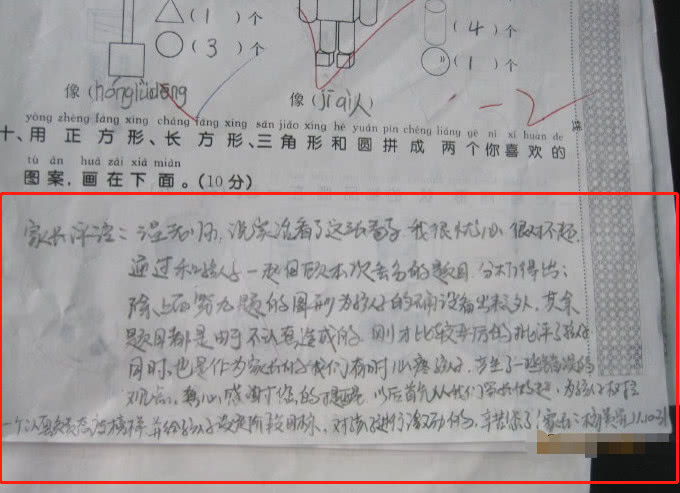 （1）个
（3）个
（4）个
（1）个
像（hónglǜdēng
像（jīqì人）
-2
yòng zhèng fāng xíng cháng fāng xíng sān jiǎo xíng hé yuán pīn chéng liǎng gè nǐ xǐ huan de
十、用 正 方 形、长 方 形、三 角 形 和 圆 拼 成 两 个 你 喜 欢 的
tú àn huà zài xià miàn
图 案，画 在 下 面。(10 分)
家长评语：湿老师，说实话看了这张卷子 我很忧心 很对不起
通过和孩子一起回顾本次丢分的题目 分析得出：
除上面第九题的图形为孩子的 外，其余
题目都是由于不认真造成的 刚才比较严厉的批评了孩子
同时，也是作为家长的我们有时心疼孩子，产生了一些错误的
观点，真心感谢您的提醒 以后首先从我们家长做起，为孩子树立
一个认真 态度榜样 并给孩子设定阶段目标，对孩子进行激励的，辛苦您了（家长： 11.10日